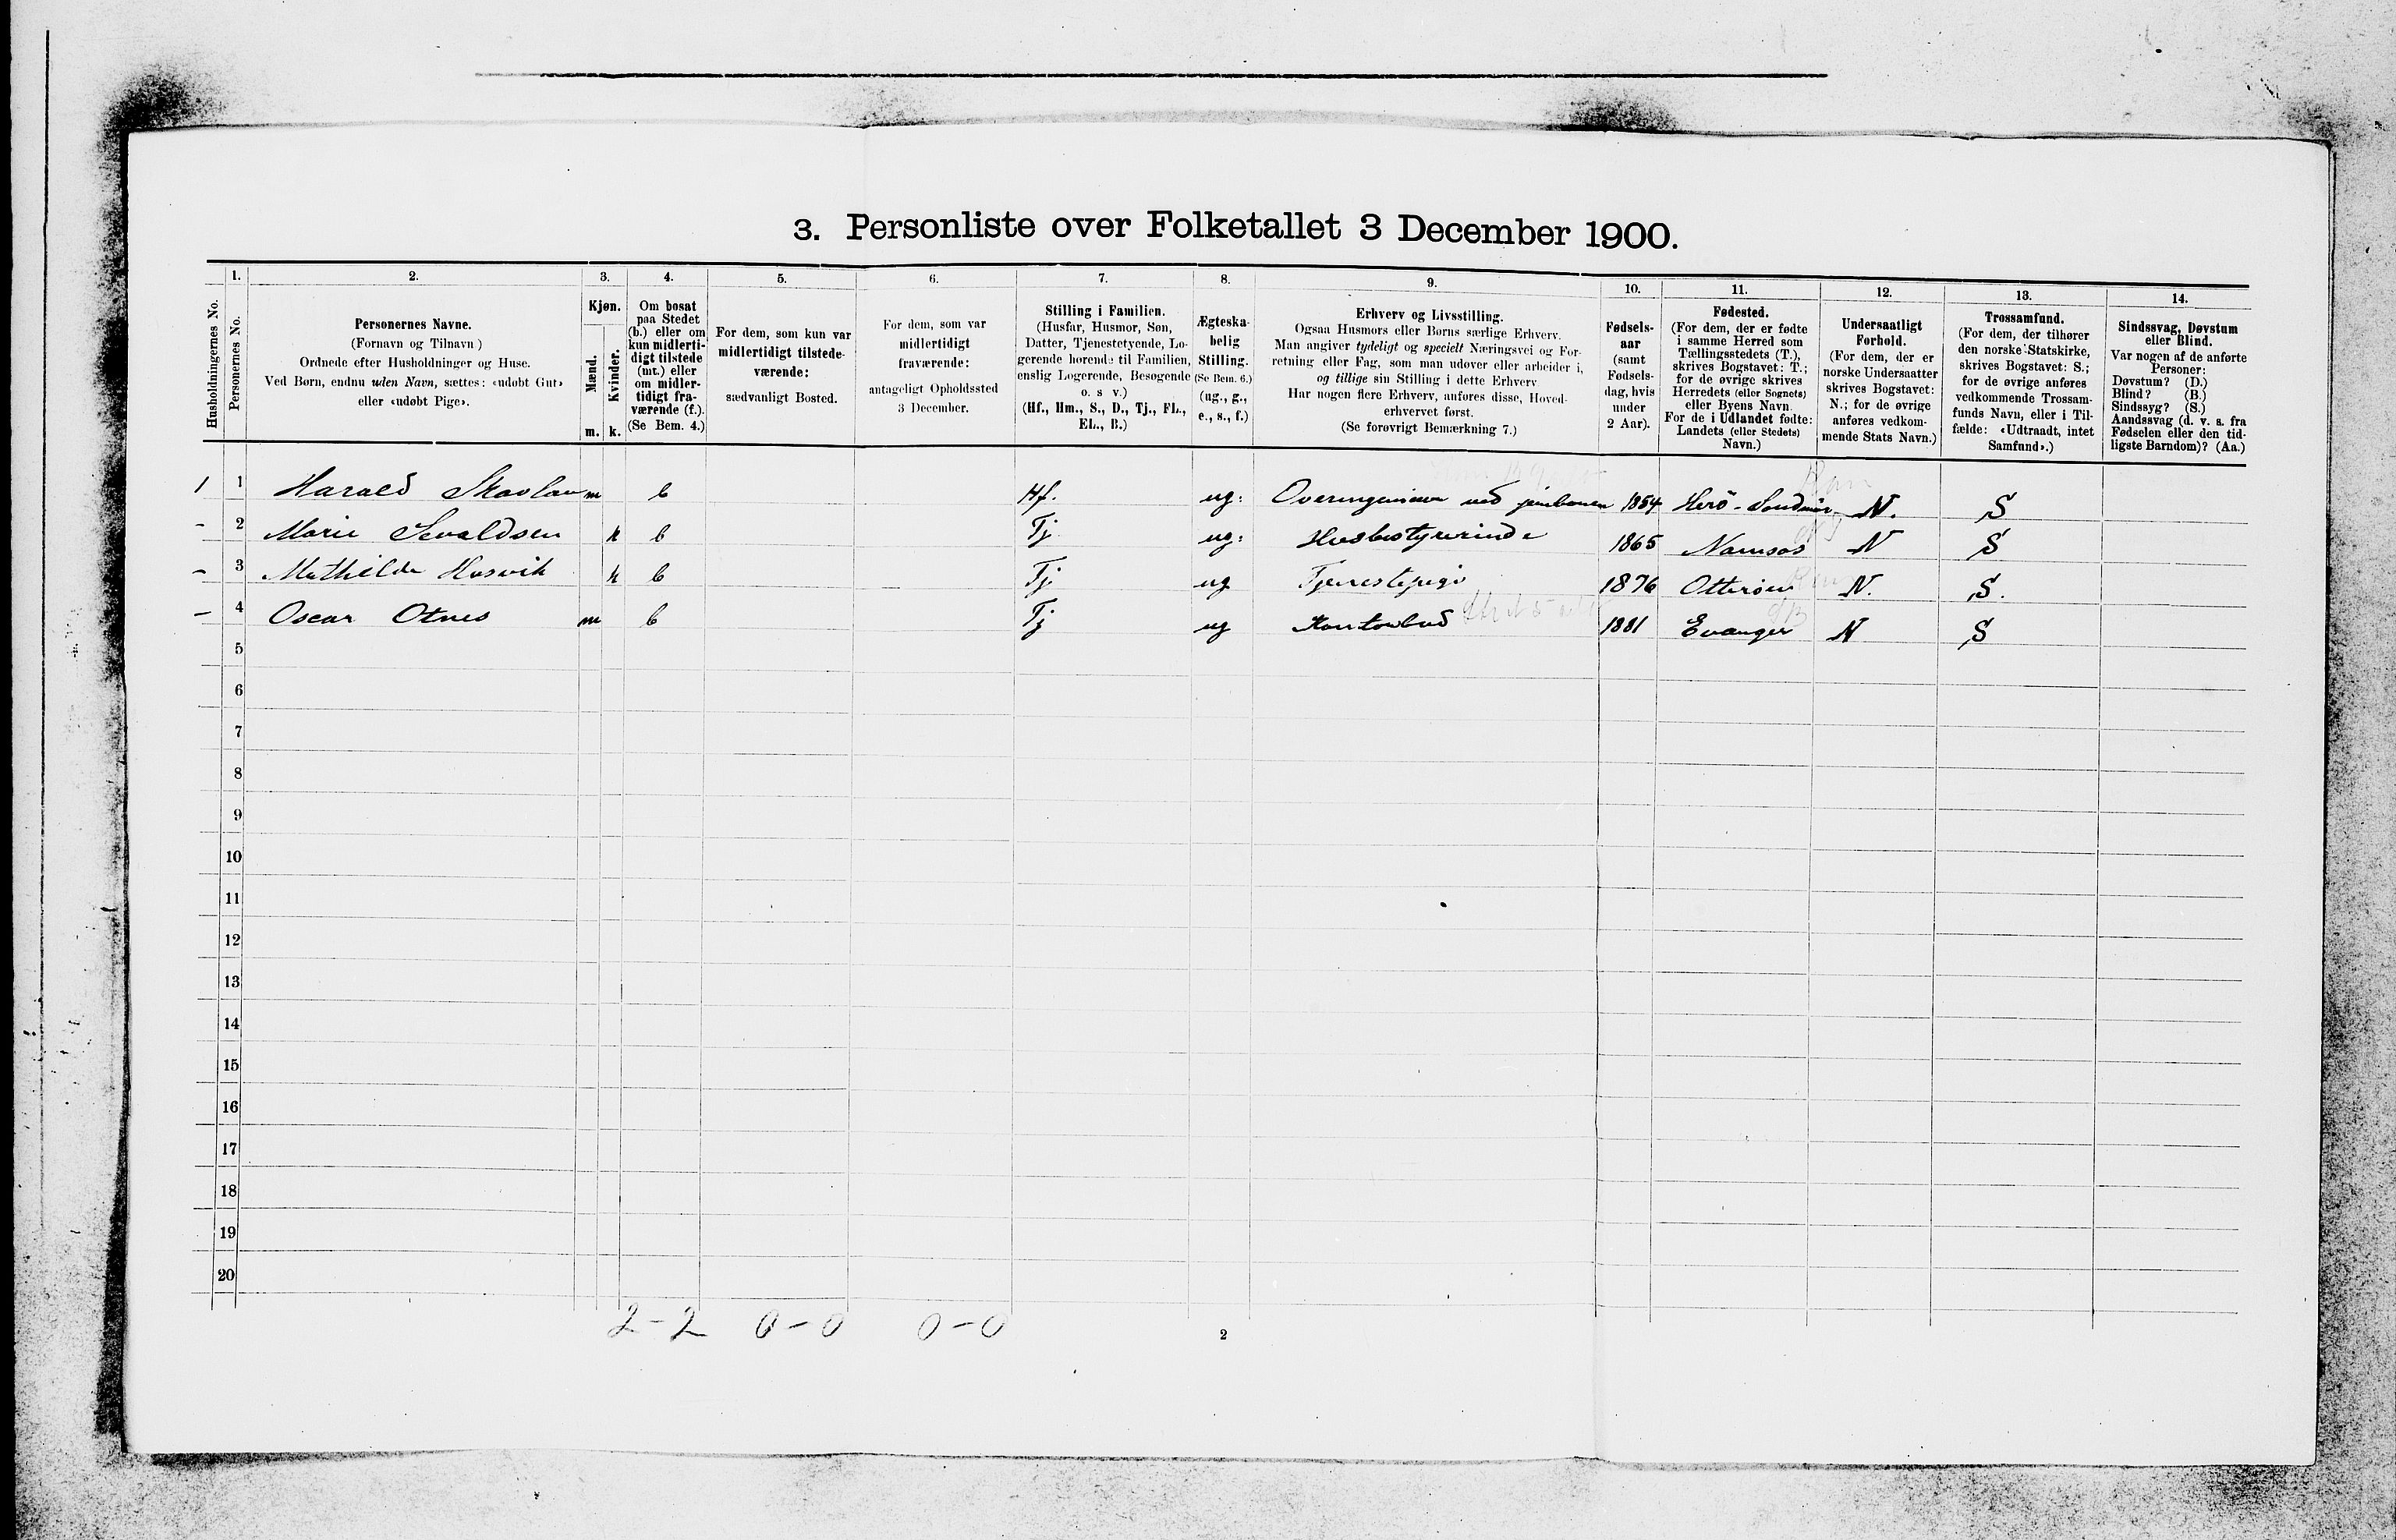 3. Personliste over Folketallet 3 December 1900.
1. 2. 3. 4. 5. 6. 7. 8. 9. 10. 11. 12. 13. 14.
Husholdningernes No.
Personernes No.
Personernes Navne.
(Fornavn og Tilnavn )
Ordnede efter Husholdninger og Huse.
Ved Børn, endnu uden Navn, sættes: «udøbt Gut»
eller «udøbt Pige».
Kjøn.
Mænd.
Kvinder.
m. k.
Om bosat
paa Stedet
(b.) eller om
kun midlerti-
digt tilstede
(mt.) eller
om midler-
tidigt fra-
værende (f.).
(Se Bem. 4.)
For dem, som kun var
midlertidigt tilstede-
værende:
sædvanligt Bosted.
For dem, som var
midlertidigt
fraværende:
antageligt Opholdssted
3 December.
Stilling i Familien.
(Husfar, Husmor, Søn,
Datter, Tjenestetyende, Lo-
gerende hørende til Familien,
enslig Logerende, Besøgende
o. s v.)
(Hf., Hm., S., D., Tj., FL.,
EL., B.)
Ægteska-
belig
Stilling.
(Se Bem. 6.)
(ug., g.,
e., s., f.)
Erhverv og Livsstilling.
Ogsaa Husmors eller Børns særlige Erhverv.
Man angiver tydeligt og specielt Næringsvei og For-
retning eller Fag, som man udøver eller arbeider i,
og tillige sin Stilling i dette Erhverv
Har nogen flere Erhverv, anføres disse, Hoved-
erhvervet først.
(Se forøvrigt Bemærkning 7.)
Fødsels-
aar
(samt
Fødsels-
dag, hvis
under
2 Aar).
Fødested.
(For dem, der er fødte
i samme Herred som
Tællingsstedets (T.),
skrives Bogstavet: T.;
for de øvrige skrives
Herredets (eller Sognets)
eller Byens Navn.
For de i Udlandet fødte:
Landets (eller Stedets)
Navn.)
Undersaatligt
Forhold.
(For dem, der er
norske Undersaatter
skrives Bogstavet:
N.; for de øvrige
anføres vedkom-
mende Stats Navn.)
Trossamfund.
(For dem, der tilhører
den norske Statskirke,
skrives Bogstavet: S.;
for de øvrige anføres
vedkommende Trossam-
funds Navn, eller i Til-
fælde: «Udtraadt, intet
Samfund».)
Sindssvag, Døvstum
eller Blind.
Var nogen af de anførte
Personer:
Døvstum? (D.)
Blind? (B.)
Sindssyg? (S.)
Aandssvag (d. v. s. fra
Fødselen eller den tid-
ligste Barndom)? (Aa.)
1 1 Harald Skavlan m b Hf. ug: Overingeniør ved jernbanen 1854 Herö - Søndmør N. S
- 2 Marie Sevaldsen k b Tj ug: Husbestyrerinde 1865 Namsos N S
- 3 Mathilde Hosvik k b Tj ug Tjenestepige 1876 Otterøen N. S.
- 4 Oscar Otnes m b Tj ug Kontorbud 1881 Evanger N S
5
6
7
8
9
10
11
12
13
14
15
16
17
18
19
20
2-2 0-0 0-0
2